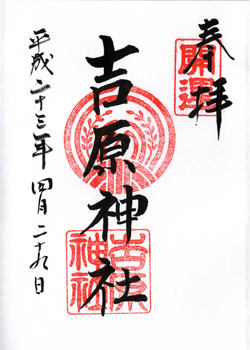 奉拝
開運
吉原神社
吉原神社
平成二十三年四月二十九日